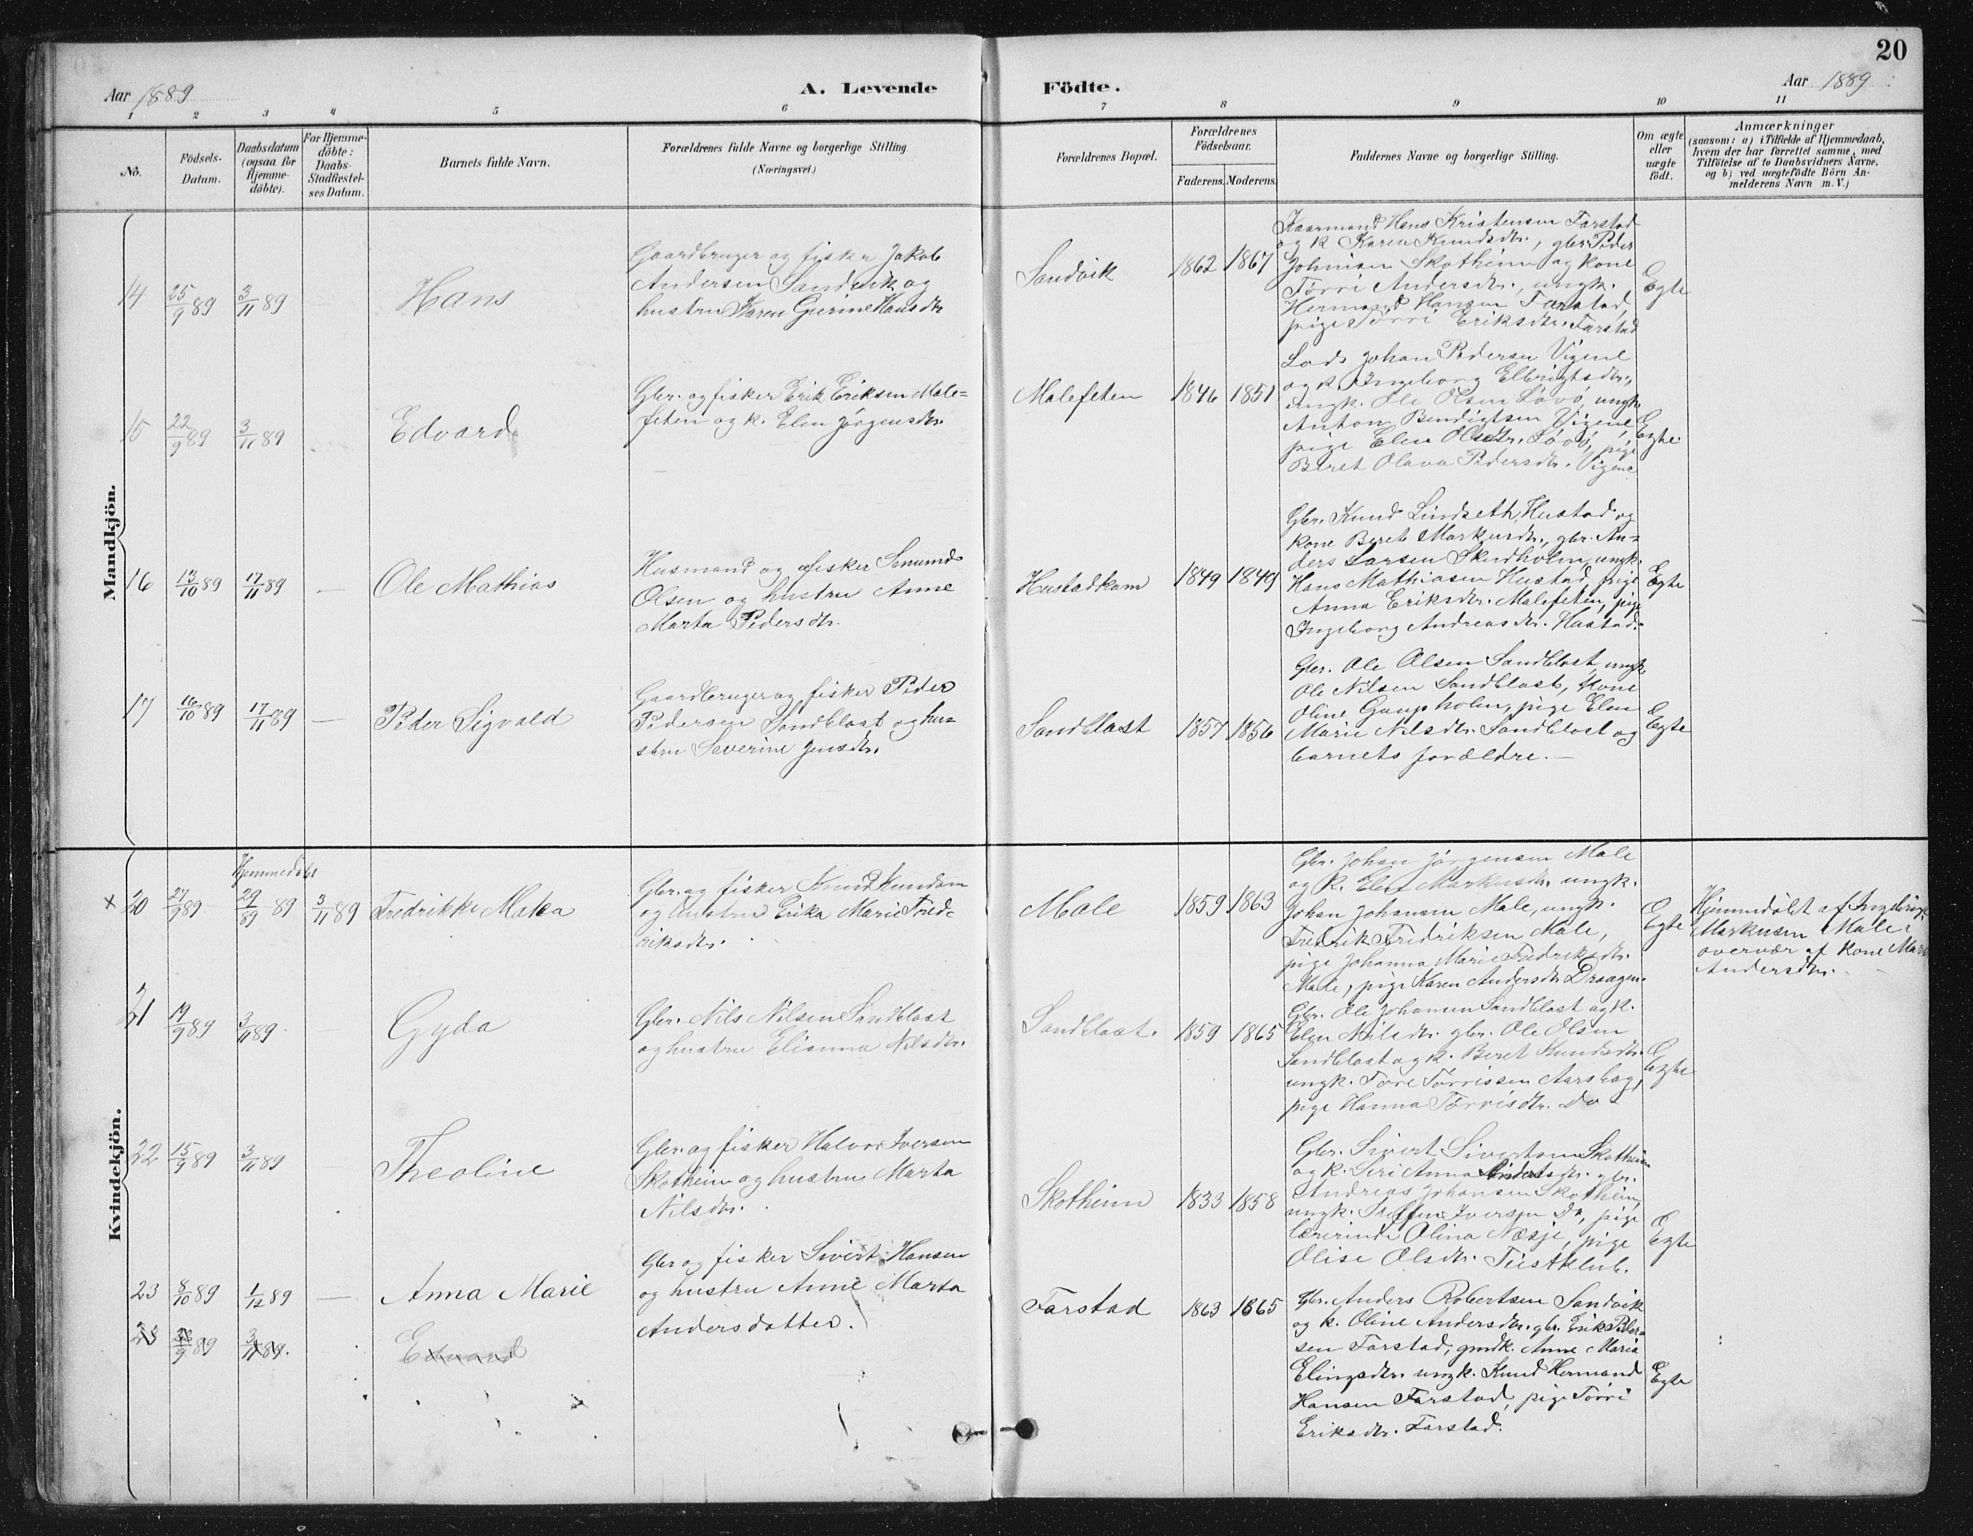 20
Aar 1889
A. Levende
Födte.
Aar 1889
1 2 3 4 5 6 7 8 9 10 11
No.
Födsels-
Datum.
Daabsdatum
(ogsaa for
Hjemme-
döbte).
For Hjemme-
döbte:
Daabs-
Stadfæstel-
ses Datum.
Barnets fulde Navn.
Forældrenes fulde Navne og borgerlige Stilling
(Næringsvei.)
Forældrenes Bopæl.
Forældrenes
Födselsaar.
Faderens. Moderens.
Faddernes Navne og borgerlige Stilling.
Om ægte
eller
uægte
födt.
Anmærkninger
(saasom: a) i Tilfælde af Hjemmedaab,
hvem der har forrettet samme, med
Tilföielse af to Daabsvidners Navne,
og b) ved uægtefödte Börn An-
melderens Navn m. V.)
Mandkjön.
14 25/9 89 3/11 89 —
Hans
Gaardbruger og fisker Jakob
Andersen Sandvik og
hustru Karen Gurine Hansdtr
Sandvik
1862 1867
Kaarmand Hans Kristensen Farstad
og k. Karen Knudsdtr., gbr. Peder
Johnsen Skotheim og kone
Törri Andersdtr., ungk.
Hermand Hansen Farstad,
pige Törri Eriksdtr. Farstad
Egte
15 22/9 89 3/11 89 —
Edvard
Gbr. og fisker Erik Eriksen Male-
feten og k. Elen Jörgensdtr.
Malefeten
1846 1851
Lods Johan Pedersen Vigene
og k. Ingeborg Ellingsdtr.,
ungk. Ole Olsen Lovö, ungk.
Anton Bendigtsen Vigene,
pige Elen Olsdtr. Lovö, pige
Beret Olava Pedersdtr. Vigene
Egte
16 13/10 89 17/11 89 —
Ole Mathias
Husmand og fisker Amund
Olsen og hustru Anne
Marta Pedersdtr.
Hustadkam
1849 1849
Gbr. Knud Lindseth Hustad og
kone Beret Markusdtr., gbr. An-
ders Larsen Skudholm, ungk.
Hans Mathiasen Hustad, pige
Anna Eriksdtr. Malefeten, pige
Ingeborg Andreasdtr. Hustad.
Egte
17 16/10 89 17/11 89 —
Peder Sigvald
Gaardbruger og fisker Peder
Pedersen Sandblaast og hu-
stru Severine Jensdtr.
Sandblast
1857 1856
Gbr. Ole Olsen Sandblast, ungk.
Ole Nilsen Sandblast, kone
Oline Gaupholm, pige Elen
Marie Nilsdtr. Sandblast og
barnets forældre. —
Egte
Kvindekjön.
Hjemmedöbt
× 20 27/9 89 29/9 89 3/11 89
Fredrikke Matea
Gbr. og fisker Knud Knudsen
og hustru Erika Marie Fred-
riksdtr.
Male
1859 1863
Gbr. Johan Jörgensen Male
og k. Elen Markusdtr. ungk.
Johan Johansen Male, ungk.
Fredrik Fredriksen Male,
pige Johanna Marie Fredriksdtr.
Male, pige Karen Andersdtr. Draagen.
Egte
Hjemmdöbt af
Markusen Male i
overvær af kone Mar
Andersdtr.
21 19/9 89 3/11 89 —
Gyda
Gbr. Nils Nilsen Sandblast
og hustru Elianna Nilsdtr.
Sandblast.
1859 1865
Gbr. Ole Johansen Sandblast og k.
Elen Nilsdtr. gbr. Ole Olsen
Sandblast og k. Beret Knudsdtr.
ungk. Tore Törrissen Aarsbog,
pige Hanna Törrisdtr. Do
Egte
22 15/9 89 3/11 89 —
Theoline
Gbr. og fisker Halvor Iversen
Skotheim og hustru Marta
Nilsdtr.
Skotheim
1833 1858
Gbr. Sivert Sivertsen Skotheim
og k. Siri Anna Andersdtr. gbr.
Andreas Johansen Skotheim,
ungk. Steffen Iversen Do, pige
lærerinde Olina Næsje, pige
Olise Olsdtr. Tustklub.
Egte
23 8/10 89 1/12 89 —
Anna Marie
Gbr og fisker Sivert Hansen
og hustru Anne Marta
Andersdatter.
Farstad
1863 1865
Gbr. Anders Robertsen Sandvik
og k. Oline Andersdtr. gbr. Erik Peder-
sen Farstad, gmdk. Anne Maria
Elingsdtr. ungk. Knud Hermand
Hansen Farstad, pige Törri
Eriksdtr. Farstad.
Egte
23 22/9 89 3/11 89.
Edvard